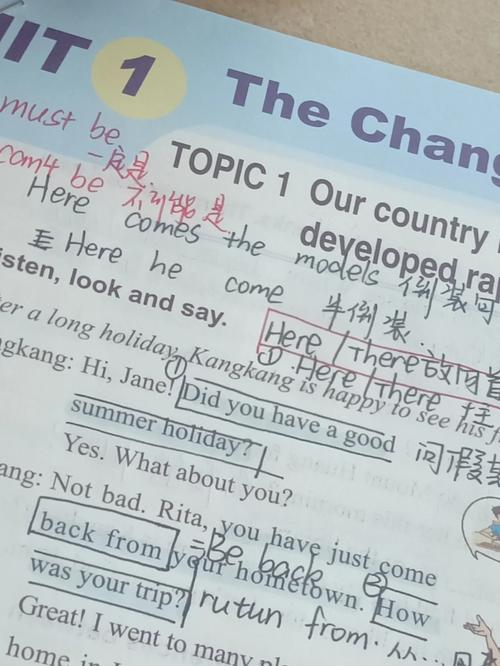 UNIT 1 The Chang
must be
一定是
TOPIC 1 Our country
be 不可能是
developed rap
Here comes the models 倒装句
Here he come 半倒装.
isten, look and say.
Here / There 放句首
ter a long holiday, Kangkang is happy to see his f
① Here / there
ngkang: Hi, Jane! ① Did you have a good
summer holiday? 问假期
Yes. What about you?
ang: Not bad. Rita, you have just come
back from your hometown. ② How
=Be back
was your trip?
rutun from.从
Great! I went to many pl
home in